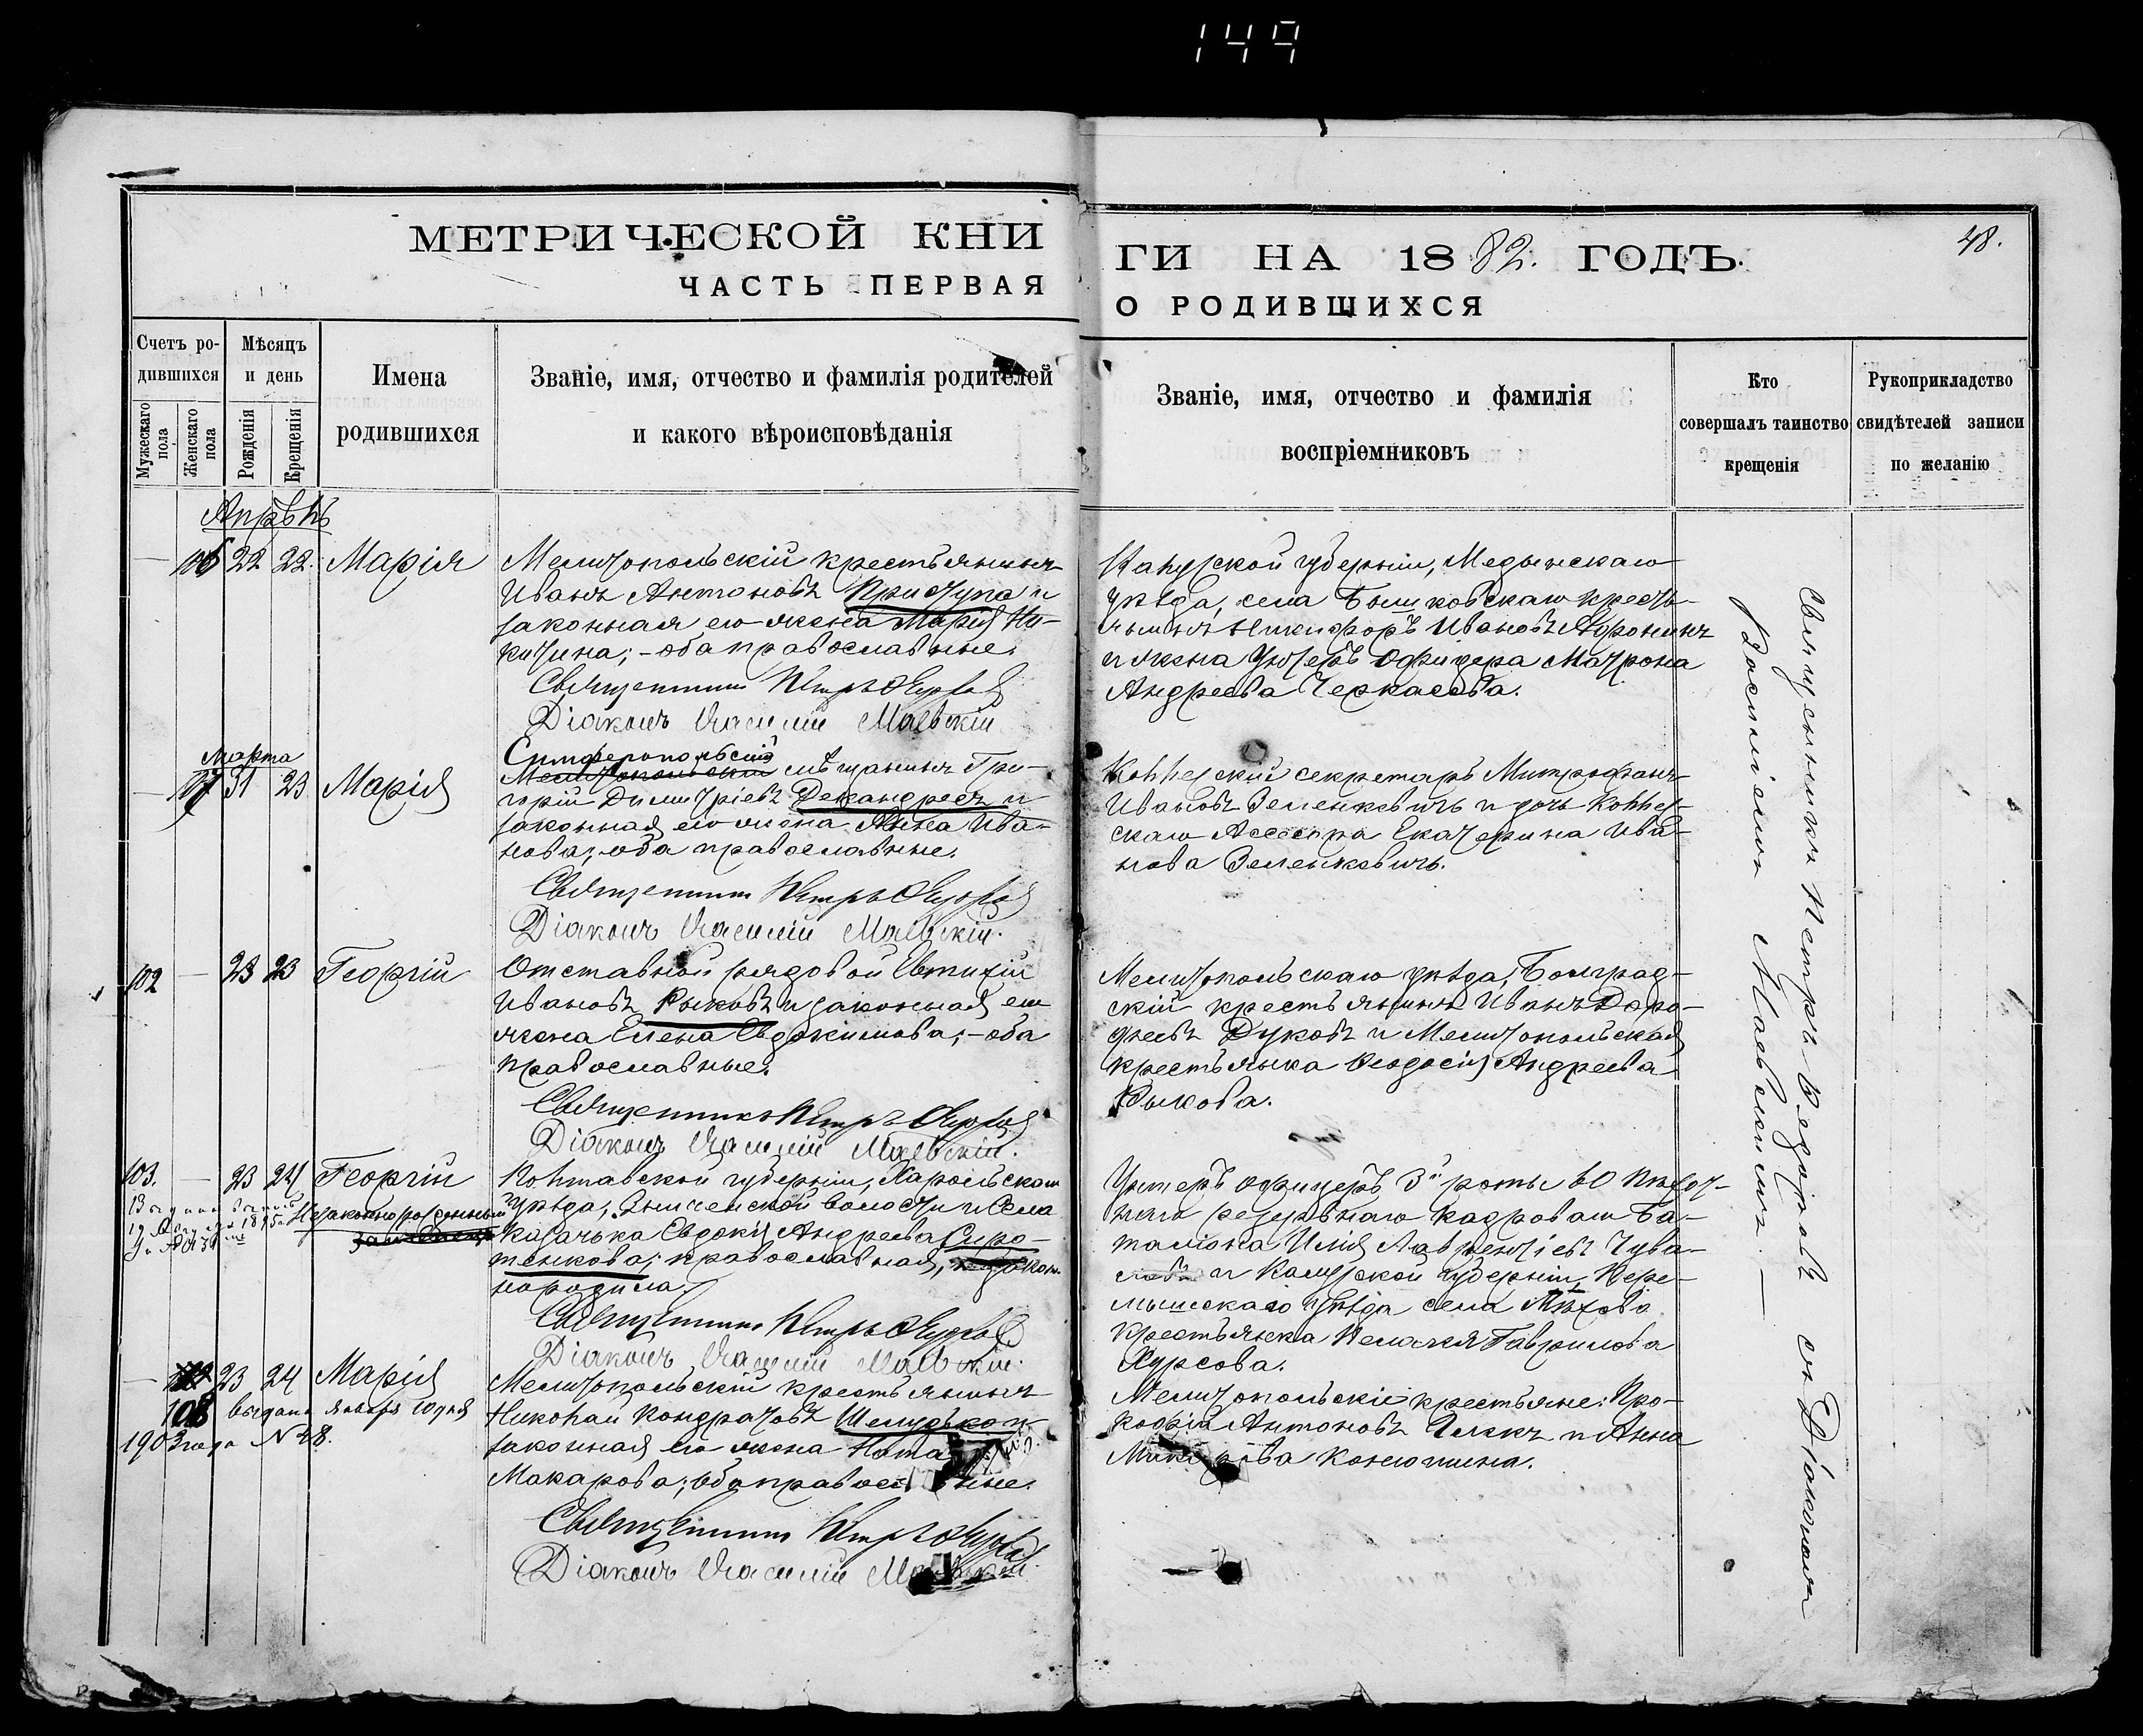 149
МЕТРИЧЕСКОЙ КНИ
ЧАСТЬ ПЕРВАЯ
ГИ НА 1882. ГОДЪ.
О РОДИВШИХСЯ
48.
Счетъ ро-
дившихся
Мужескаго
пола
Женскаго
пола
Мѣсяцъ
и день
Рожденія
Крещенія
Имена
родившихся
Званіе, имя, отчество и фамилія родителей
и какого вѣроисповѣданія
Званіе, имя, отчество и фамилія
воспріемниковъ
Кто
совершалъ таинство
крещенія
Рукоприкладство
свидѣтелей записи
по желанію
Апрѣль
— 106 22 22. Марія
Мелитопольскій крестьянинъ
Иванъ Антоновъ Притупа и
законная его жена Марія Ни-
китина; - оба православные.
Священникъ Петръ
Діаконъ Василій Маевскій
Калужской губерніи, Медынскаго
уѣзда, села крестья-
янинъ Никифоръ Ивановъ
и жена Унтеръ Офицера Матрона
Андреева Черкасова.
Марта
— 107 31 23 Марія
Симферопольскій
Мелитопольскій мѣщанинъ Гри-
горій Димитріевъ и
законная его жена Анна Ива-
нова; оба православные.
Священникъ Петръ
Діаконъ Василій Маевскій.
Коллежскій секретарь Митрофанъ
Ивановъ Зеленкевичъ и дочь Коллеж-
скаго Асессора Екатерина Ива-
нова Зеленкевичъ.
102 — 23 23 Георгій
Отставной рядовой Евтихій
Ивановъ Рыковъ и законная его
жена Елена Евдокимова; - оба
православные.
Священникъ Петръ
Діаконъ Василій Маевскій.
Мелитопольскаго уѣзда, Болград-
скій крестьянинъ Иванъ Доро-
феевъ Дуковъ и Мелитопольская
крестьянка Феодосія Андреева
Рыкова.
103. — 23 24 Георгій
Незаконнорожденный
Полтавской губерніи, Хорольскаго
уѣзда, волости и села
казачка Евдокія Андреева Сиро-
тенкова; православная, незакон-
но родила.
Священникъ Петръ
Діаконъ Василій Маевскій.
Унтеръ офицеръ 3й роты 60 Пѣхот-
наго резервнаго кадроваго Ба-
таліона Илія Лаврентіевъ Чува-
и Калужской губерніи, Пере-
мышскаго уѣзда села
крестьянка Пелагея Гаврилова
Хурсова.
— 108 23 24 Марія
выдана января 10 дня
1903 года N 48.
Мелитопольскій крестьянинъ
Николай Кондратовъ Шелудько и
законная его жена
Макарова; оба православные.
Священникъ Петръ
Діаконъ Василій Маевскій
Мелитопольскіе крестьяне: Про-
кофій Антоновъ и Анна
Конюшина.
Священникъ Петръ съ Діакономъ
Василіемъ Маевскимъ. —